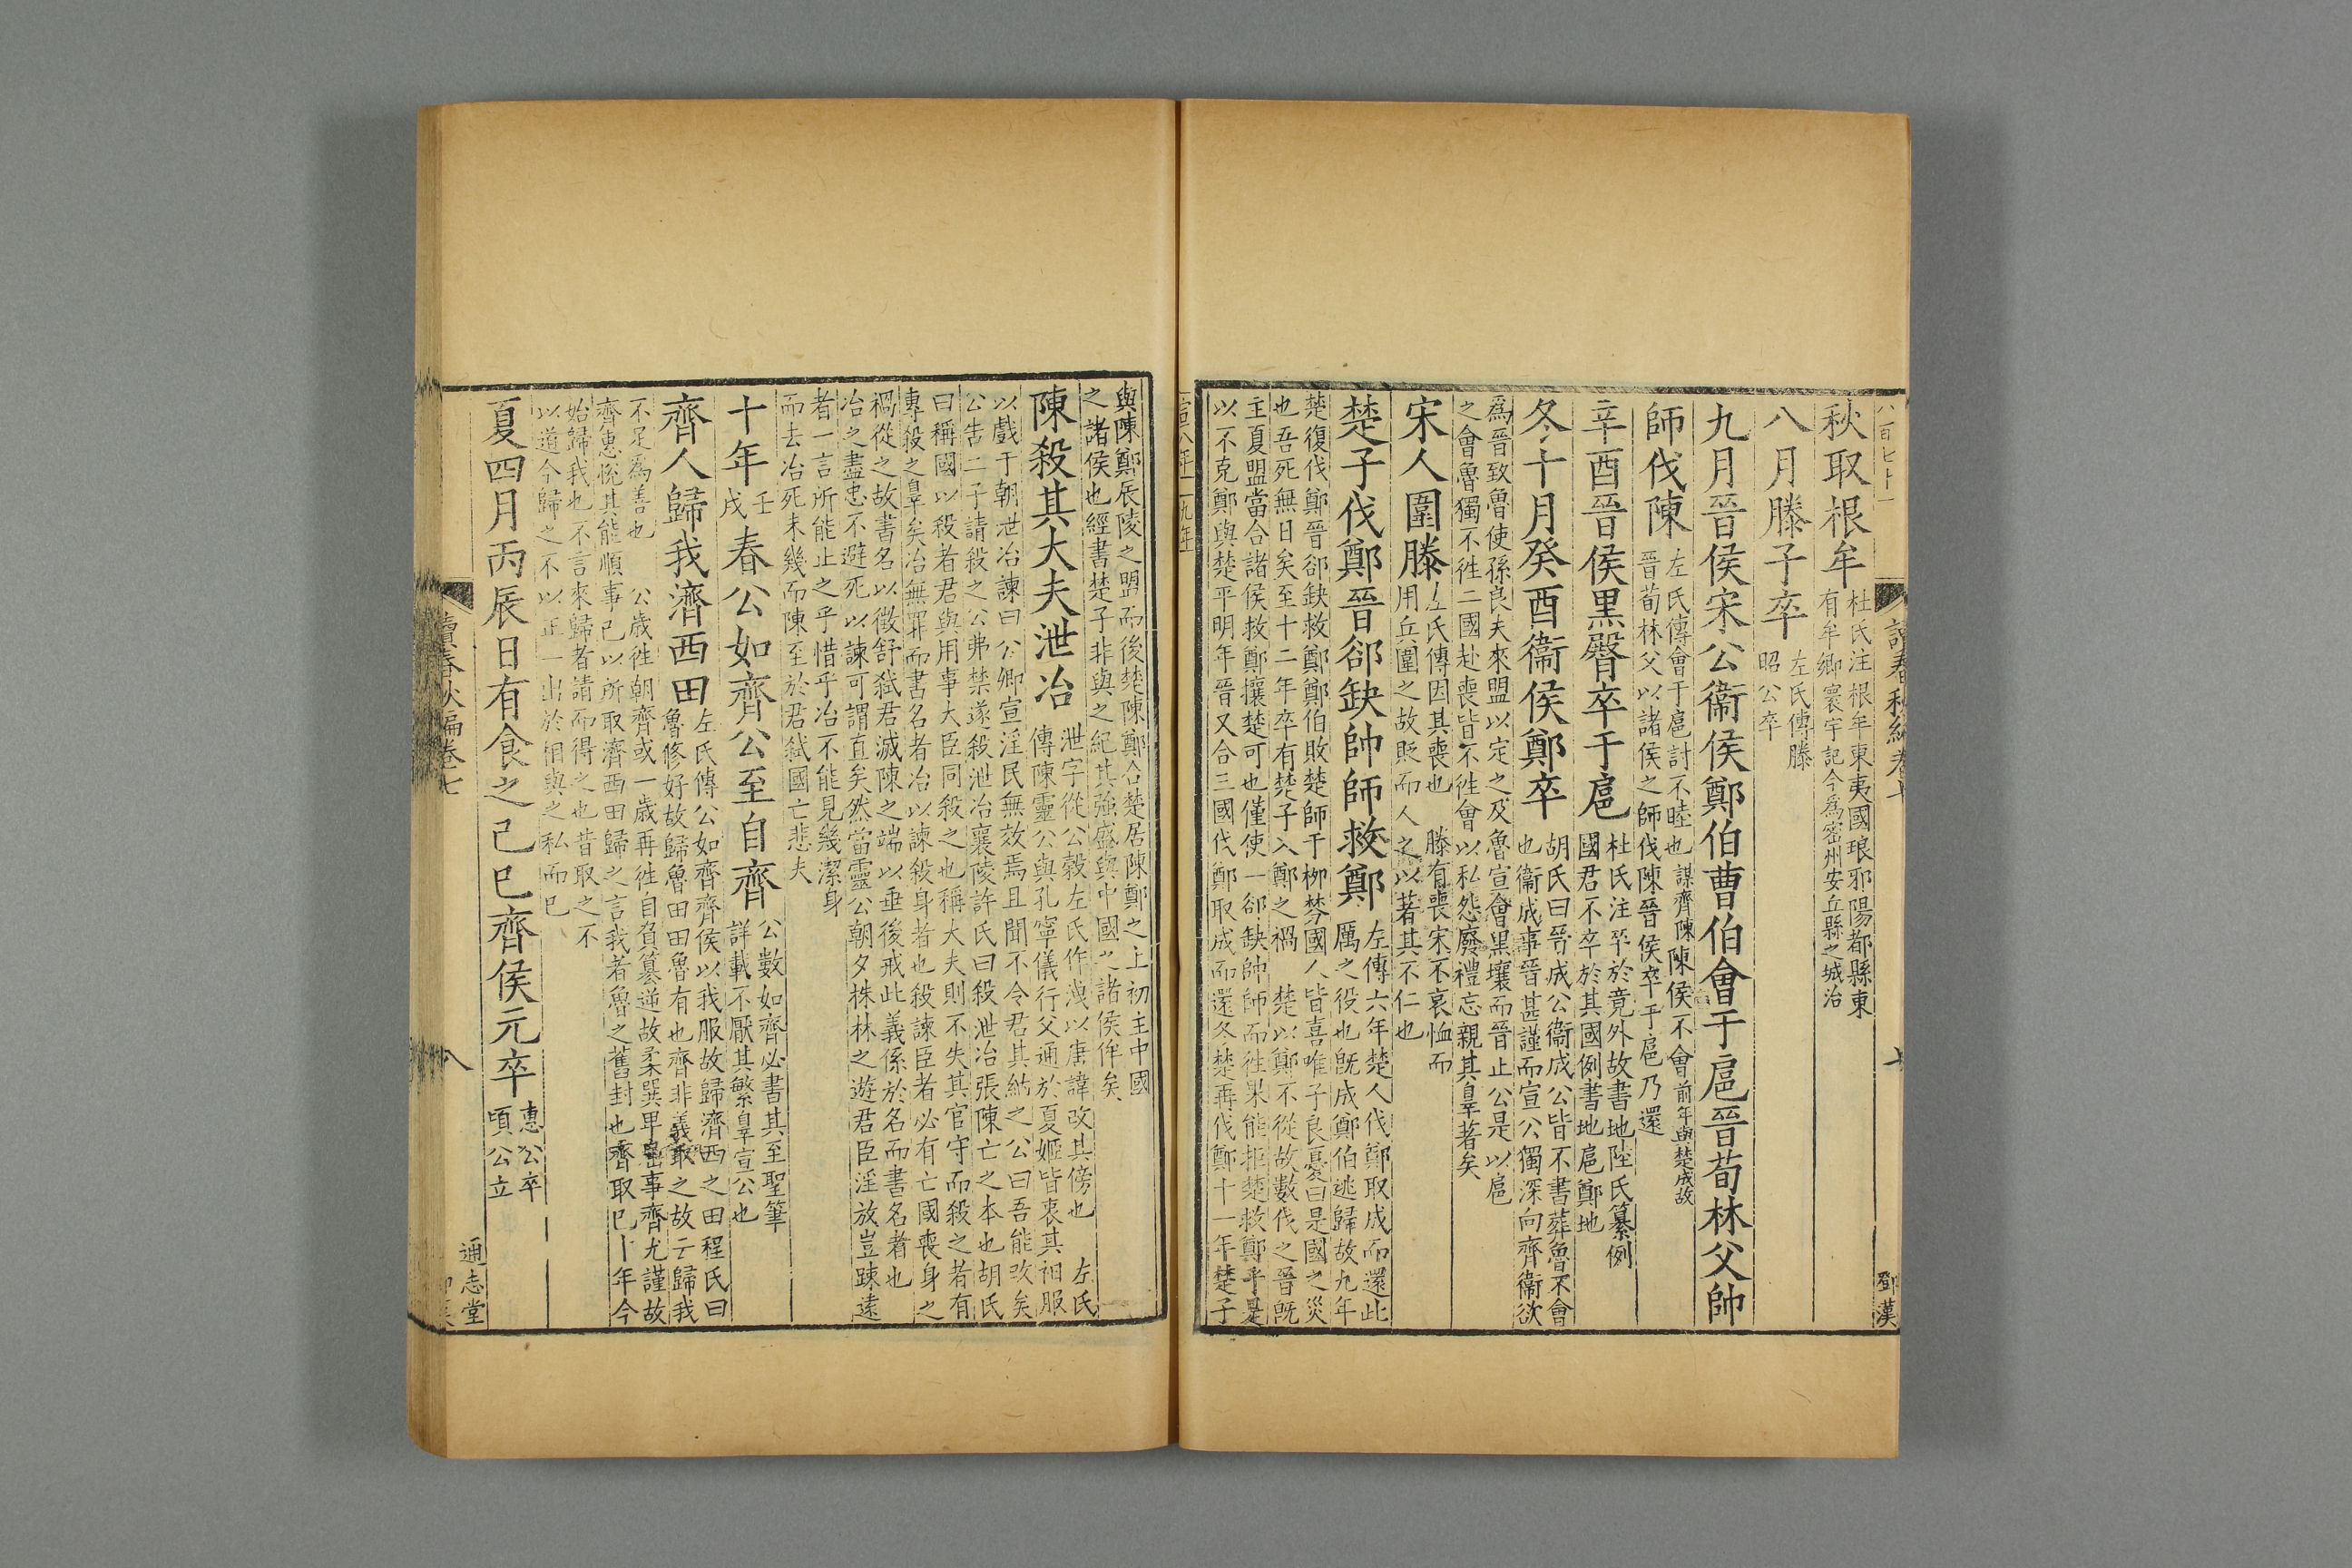 八百七十一
讀春秋編卷七
鄧漢
秋取根牟
杜氏注根牟東夷國琅邪陽都縣東
有牟鄉寰宇記今為密州安丘縣之城治
八月滕子卒
左氏傳滕
昭公卒
九月晉侯宋公衞侯鄭伯曹伯會于扈晉荀林父帥
師伐陳
左氏傳會于扈討不睦也謀齊陳陳侯不會前年與楚成故
晉荀林父以諸侯之師伐陳晉侯卒于扈乃還
辛酉晉侯黑臀卒于扈
杜氏注卒於竟外故書地陸氏纂例
國君不卒於其國例書地扈鄭地
冬十月癸酉衞侯鄭卒
胡氏曰晉成公衞成公皆不書葬魯不會
也衞成事晉甚謹而宣公獨深向齊衞欲
為晉致魯使孫良夫來盟以定之及魯宣會黑壤而晉止公是以扈
之會魯獨不徃二國赴喪皆不徃會以私怨廢禮忘親其辠著矣
宋人圍滕
左氏傳因其喪也　滕有喪宋不哀恤而
用兵圍之故貶而人之以著其不仁也
楚子伐鄭晉郤缺帥師救鄭
左傳六年楚人伐鄭取成而還此
厲之役也旣成鄭伯逃歸故九年
楚復伐鄭晉郤缺救鄭鄭伯敗楚師于栁棼國人皆喜唯子良憂曰是國之災
也吾死無日矣至十二年卒有楚子入鄭之禍　楚以鄭不從故數伐之晉旣
主夏盟當合諸侯救鄭攘楚可也僅使一郤缺帥師而徃果能拒楚救鄭乎是
以不克鄭與楚平明年晉又合三國伐鄭取成而還冬楚再伐鄭十一年楚子
宣八年 九年
與陳鄭辰陵之盟而後楚陳鄭合楚居陳鄭之上初主中國
之諸侯也經書楚子非與之紀其強盛與中國之諸侯侔矣
陳殺其大夫泄冶
泄字從公穀左氏作洩以唐諱改其傍也　左氏
傳陳靈公與孔寧儀行父通於夏姬皆衷其衵服
以戲于朝泄冶諫曰公卿宣淫民無效焉且聞不令君其納之公曰吾能改矣
公告二子請殺之公弗禁遂殺泄冶襄陵許氏曰殺泄冶張陳亡之本也胡氏
曰稱國以殺者君與用事大臣同殺之也稱大夫則不失其官守而殺之者有
專殺之辠矣冶無罪而書名者冶以諫殺身者也殺諫臣者必有亡國喪身之
禍從之故書名以徵舒弑君滅陳之端以垂後戒此義係於名而書名者也
冶之盡忠不避死以諫可謂直矣然當靈公朝夕株林之遊君臣淫放豈踈遠
者一言所能止之乎惜乎冶不能見幾潔身
而去冶死未幾而陳至於君弑國亡悲夫
十年
壬
戌
春公如齊公至自齊
公數如齊必書其至聖筆
詳載不厭其繁辠宣公也
齊人歸我濟西田
左氏傳公如齊齊侯以我服故歸濟西之田程氏曰
魯修好故歸魯田田魯有也齊非義取之故云歸我
不足為善也　公歲徃朝齊或一歲再徃自負篡逆故柔巽卑屈事齊尤謹故
齊惠悅其能順事己以所取濟西田歸之言我者魯之舊封也齊取已十年今
始歸我也不言來歸者請而得之也昔取之不
以道今歸之不以正一出於相與之私而已
夏四月丙辰日有食之己巳齊侯元卒
惠公卒
頃公立
讀春秋編卷七
八
通志堂